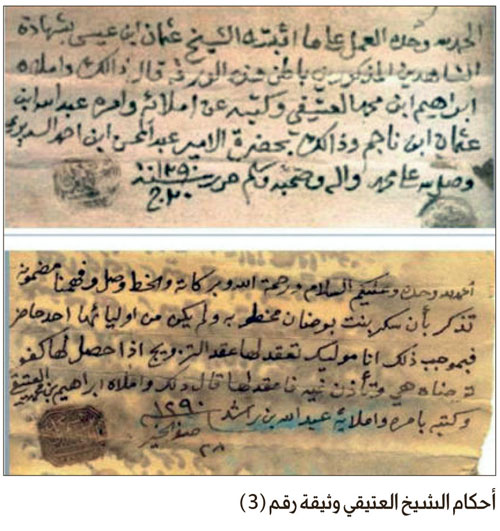 الحمد لله وحده العمل علي ما اثبته الشيخ عثمان ابن عيسى بشهادة
الشاهدين المذكورين باطن هذه الورقة قال ذالك واملاه
ابراهيم ابن محمد العتيقي وكتبه عن املائه وامره عبدالله ابن
عثمان ابن ناجم وذالك بحضرة الامير عبدالمحسن ابن احمد السديري
وصلى الله على محمد واله وصحبه وسلم حرر سنة ١٢٩٠
٢٠ ج
الحمد لله وحده وعليكم السلام ورحمة الله وبركاته والخط وصل وفهمنا مضمونه
تذكر بأن سكر بنت بوضنان مخطوبه ولم يكن من اوليائها احد حاضر
فبموجب ذلك انا موليك تعقد لها عقد التزويج اذا حصل لها كفو
ترضاه هي وتأذن فيه فاعقد لها قال ذلك واملاه ابراهيم بن محمد العتيقي
وكتبه بامره واملائه عبدالله بن راشد ١٢٩٠
٢٨ صفر الخير
أحكام الشيخ العتيقي وثيقة رقم (3)